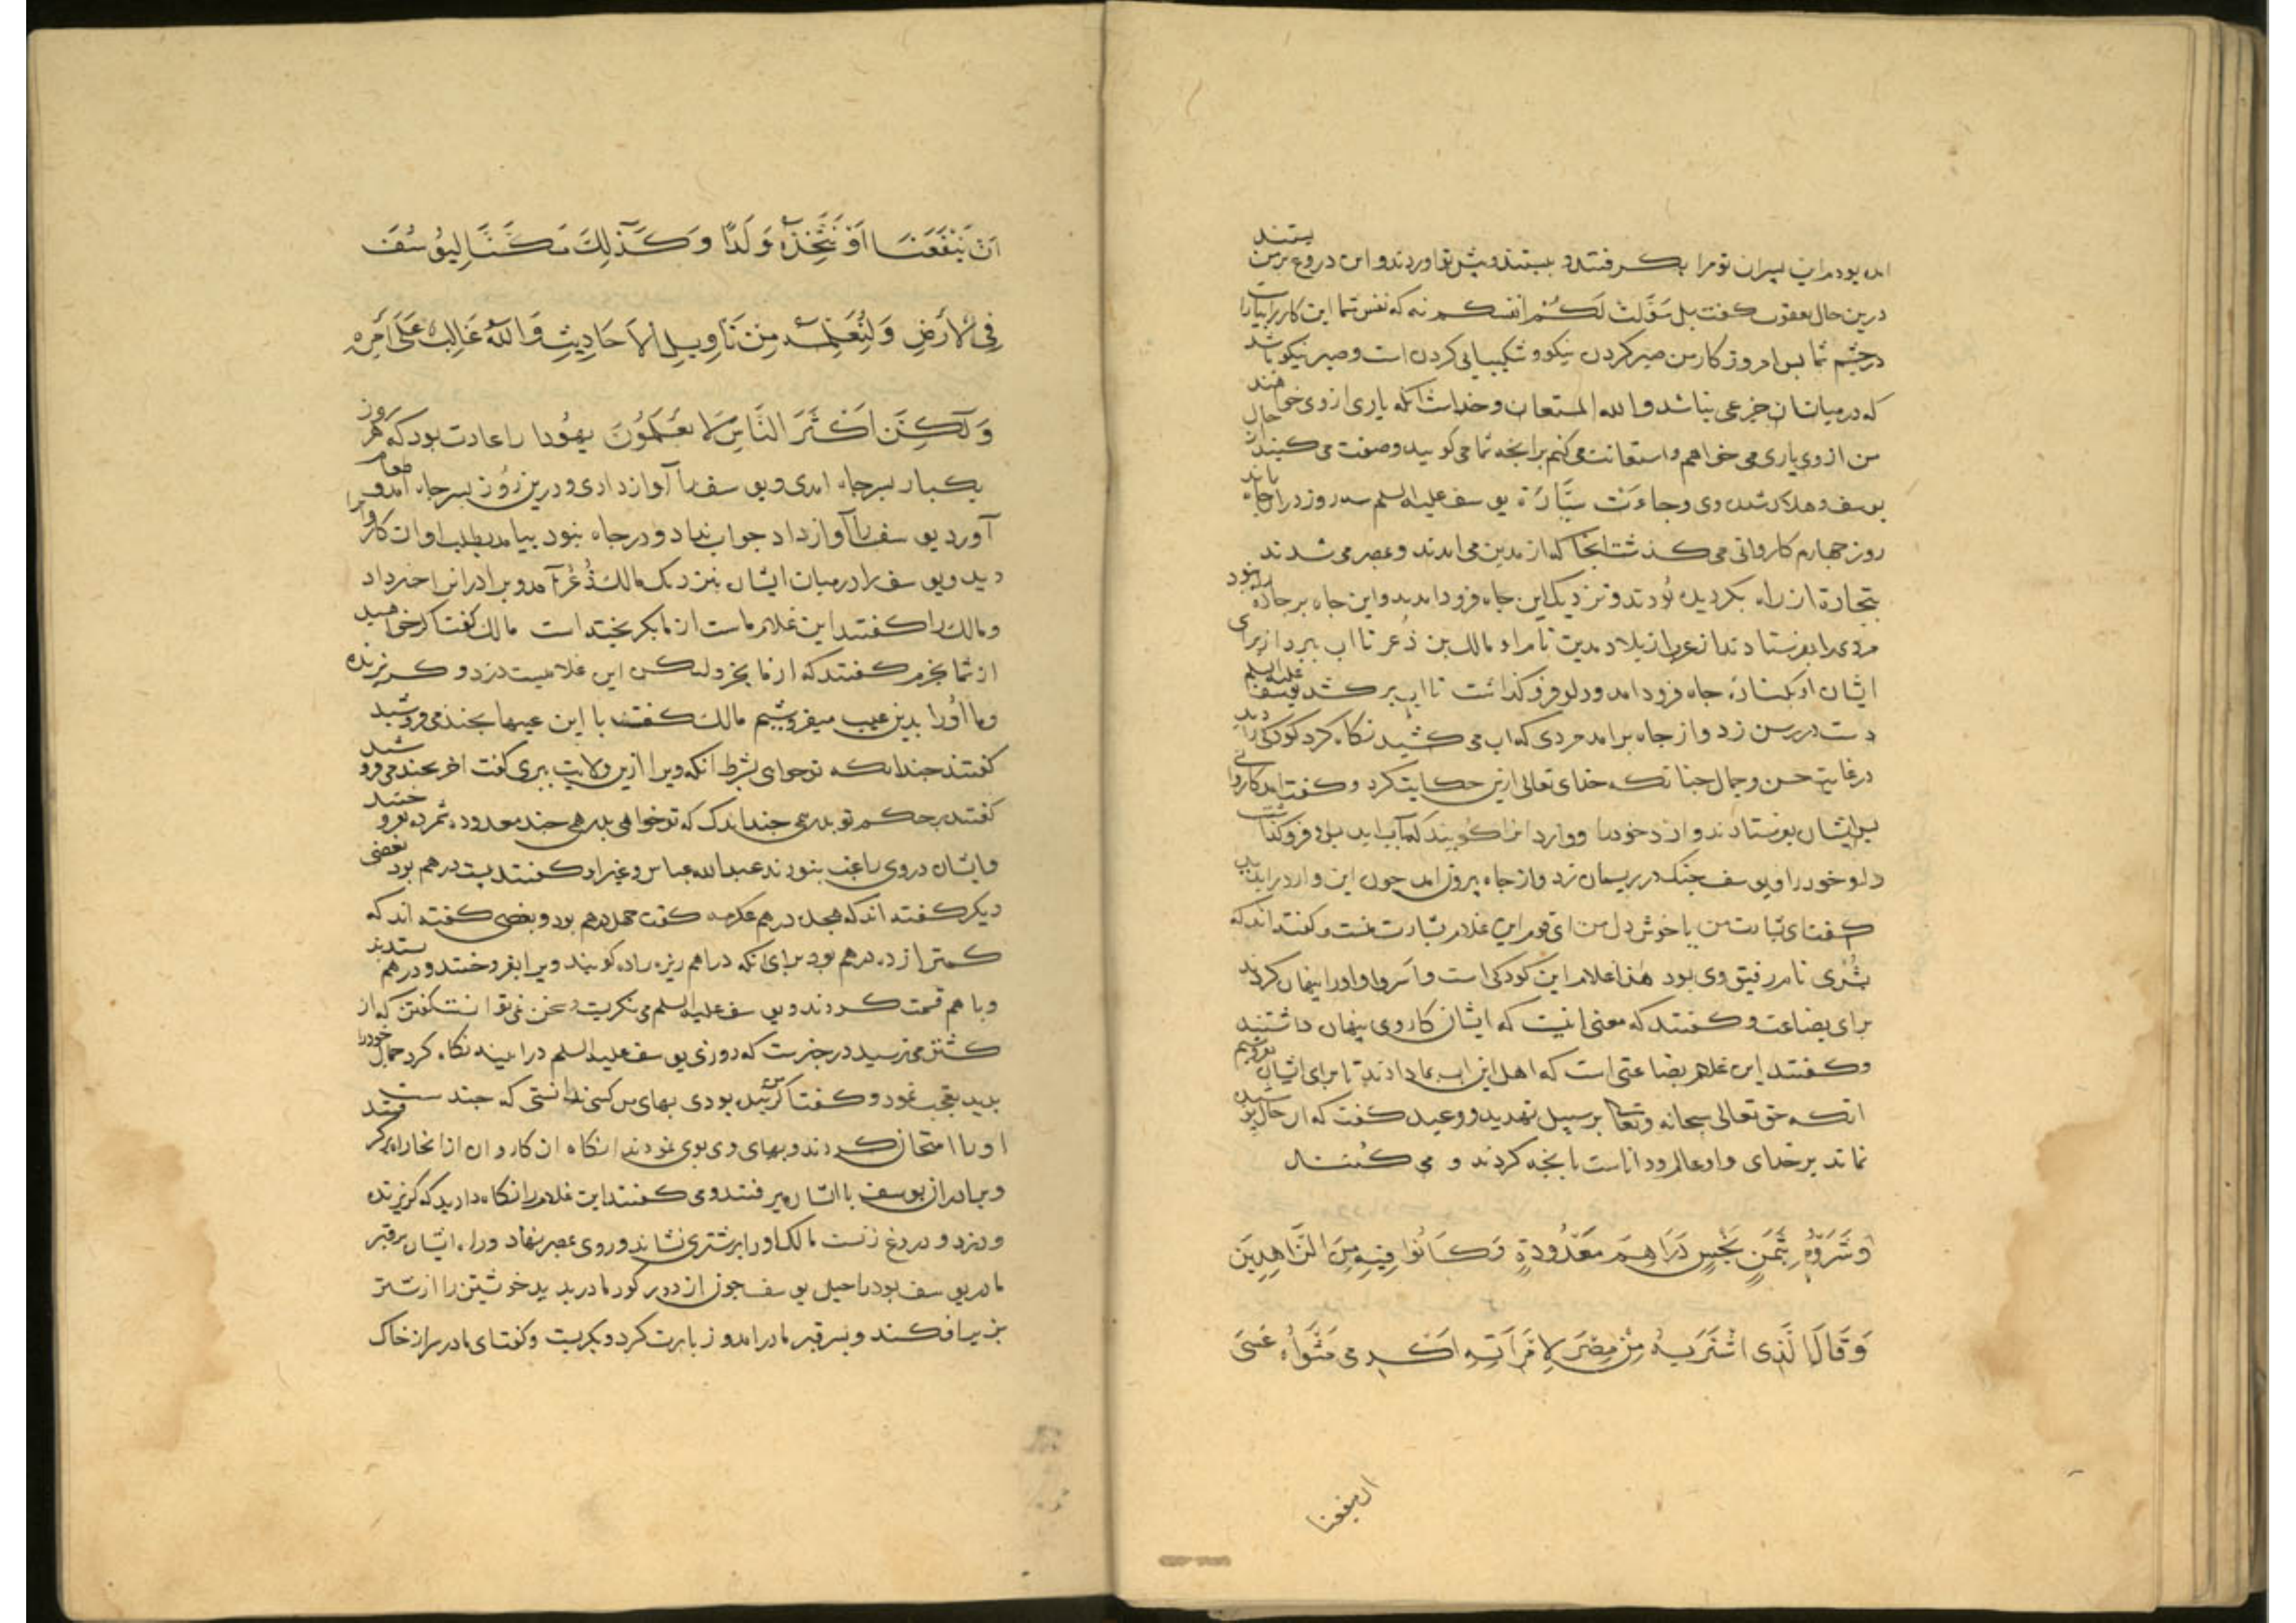 امده بودم این پسران تو مرا بکرفتند و ببستند و پیش تو اوردند و این دروغ بر من بستند
درین حال یعقوب کفت بل سولت لکم انفسکم نه که نفس شما این کار را بیاراست
در چشم شما پس امروز کار من صبر کردن نیکو و شکیبایی کردن است و صبر نیکو باشد
که در میان ان جزعی نباشد والله المستعان و خداست انکه یاری از وی خواهند
من از وی یاری می خواهم و استعانت می کنم بر انجه شما می کویید و صفت می کنید از حال
یوسف و هلاک شدن وی وجاءت سیارة یوسف علیه السلم سه روز در ان جاه بماند
روز جهارم کاروانی می کذشت انجا که از مدین می امدند و بمصر می شدند
بتجارة از راه بکردیده بودند و نزدیک این جاه فرود امدند و این جاه بر جاده راه نبود
مردی را بفرستادند از عرب از بلاد مدین نام او مالک بن ذعر تا اب برد از برای
ایشان او بکناره جاه فرود امد و دلو فرو کذاشت تا اب بر کشد یوسف علیه السلم
دست در رسن زد و از جاه برامد مردی که اب می کشید نکاه کرد کودکی را دید
در غایت حسن و جمال جنانکه خدای تعالی ازین حکایت کرد و کفت امد کاروانی
پس ایشان بفرستادند وارد خود را و وارد انرا کویند که بآب اید پس دلو فرو کذاشت
دلو خود را و یوسف جنک در ریسمان زد و از جاه بیرون امد جون این وارد را بدید
کفت ای بشارت من یا خوش دل من ای قوم این غلام بشارت منست و کفته اند که
بشری نام رفیق وی بود هذا غلام این کودکی است و اسروه و او را پنهان کردند
برای بضاعت و کفتند که معنی انست که ایشان کار وی پنهان داشتند
و کفتند این غلام بضاعتی است که اهل این اب بما دادند تا برای ایشان بفروشیم
انکه حق تعالی سبحانه و تعالی بر سبیل تهدید و وعید کفت که ار حال پوشیده
نماند بر خدای و او عالم و داناست بانجه کردند و می کنند
وَشَرَوْهُ بِثَمَنٍ بَخْسٍ دَرَاهِمَ مَعْدُودَةٍ وَكَانُوا فِيهِ مِنَ الزَّاهِدِينَ
وَقَالَ الَّذِي اشْتَرَيهُ مِنْ مِصْرَ لِامْرَاَتِهِ اَكْرِمِي مَثْوَاهُ عَسَى
ان ینفعنا
اَنْ يَنْفَعَنَا اَوْ نَتَّخِذَهُ وَلَدًا وَكَذٰلِكَ مَكَّنَّا لِيُوسُفَ
فِي الْاَرْضِ وَلِنُعَلِّمَهُ مِنْ تَاْوِيلِ الْاَحَادِيثِ وَاللّٰهُ غَالِبٌ عَلَى اَمْرِهِ
وَلٰكِنَّ اَكْثَرَ النَّاسِ لَا يَعْلَمُونَ یهودا را عادت بود که هر روز
یکبار بسر جاه امدی و یوسف را آواز دادی و درین روز بسر جاه امد و طعام
آورد یوسف را آواز داد جواب نداد و در جاه نبود بیامد بطلب او ان کاروان را
دید و یوسف را در میان ایشان بنزدیک مالک ذعر آمد و برادرانرا خبر داد
و مالک را کفتند این غلام ماست از ما بکریخته است مالک کفت اکر خواهید
از شما بخرم کفتند که از ما بخر و لیکن این غلامیست دزد و کریزنده
و ما او را بدین عیب میفروشیم مالک کفت با این عیبها بجند می فروشید
کفتند جندانکه تو خواهی بشرط انکه ویرا ازین ولایت ببری کفت اخر بجند می فروشید
کفتند بحکم تو بدرمی جند اندک که تو خواهی بدرمی جند معدوده شمرده بفروختند
و ایشان در وی راغب نبودند عبدالله عباس و غیر او کفتند بیست درهم بود بعضی
دیکر کفته اند که هجده درهم عکرمه کفت جهل درهم بود و بعضی کفته اند که
کمتر از ده درهم بود برای انکه دراهم ریزه را ده کویند ویرا بفروختند و درهم ستدند
و با هم قسمت کردند و یوسف علیه السلم می نکریست و سخن نمی توانست کفتن که از
کشتن می ترسید در خبرست که روزی یوسف علیه السلم در ایینه نکاه کرد جمال خود را
بدید تعجب نمود و کفت اکر من بنده بودی بهای من کسی ندانستی که جند است
او را امتحان کردند و بهای وی بوی نمودند انکاه ان کاروان از انجا راه برکرفتند
و برادران یوسف با ایشان میرفتند و می کفتند این غلام را نکاه دارید که کریزنده
و دزد و دروغ زنست مالک او را بر شتری نشاند و روی بمصر نهاد و راه ایشان بر قبر
مادر یوسف بود راحیل یوسف جون از دور کور مادر بدید خویشتن را از شتر
بزیر افکند و بسر قبر مادر امد و زیارت کرد و بکریست و کفت ای مادر سر از خاک